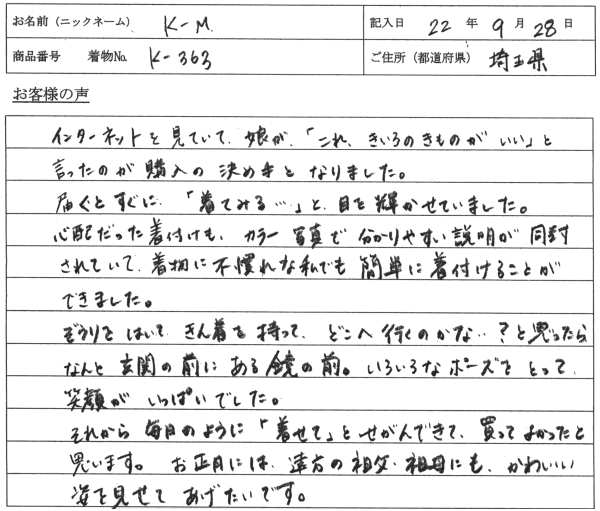 お名前（ニックネーム） K-M. 記入日 22 年 9 月 28 日
商品番号 着物No. K-363 ご住所（都道府県） 埼玉県
お客様の声
インターネットを見ていて、娘が、「これ、きいろのきものがいい」と
言ったのが購入の決め手となりました。
届くとすぐに、「着てみる…」と、目を輝かせていました。
心配だった着付けも、カラー写真で分かりやすい説明が同封
されていて、着物に不慣れな私でも簡単に着付けることが
できました。
ぞうりをはいて、きん着を持って、どこへ行くのかな…？と思ったら
なんと玄関の前にある鏡の前。いろいろなポーズをとって、
笑顔がいっぱいでした。
それから毎日のように「着せて」とせがんできて、買ってよかったと
思います。お正月には、遠方の祖父・祖母にも、かわいい
姿を見せてあげたいです。